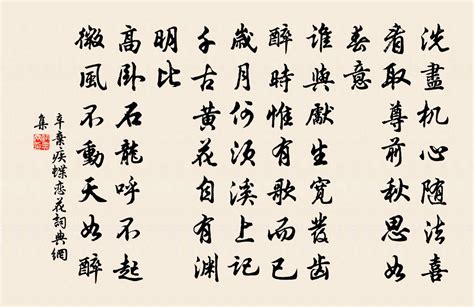 洗盡机心随法喜
看取尊前秋思如
春意
誰與獻生寬發齒
醉時惟有歌而已
歲月何須溪上記
千古黄花自有渊
明比
高卧石龍呼不起
微風不動天如醉
辛棄疾蝶恋花詞典網
集